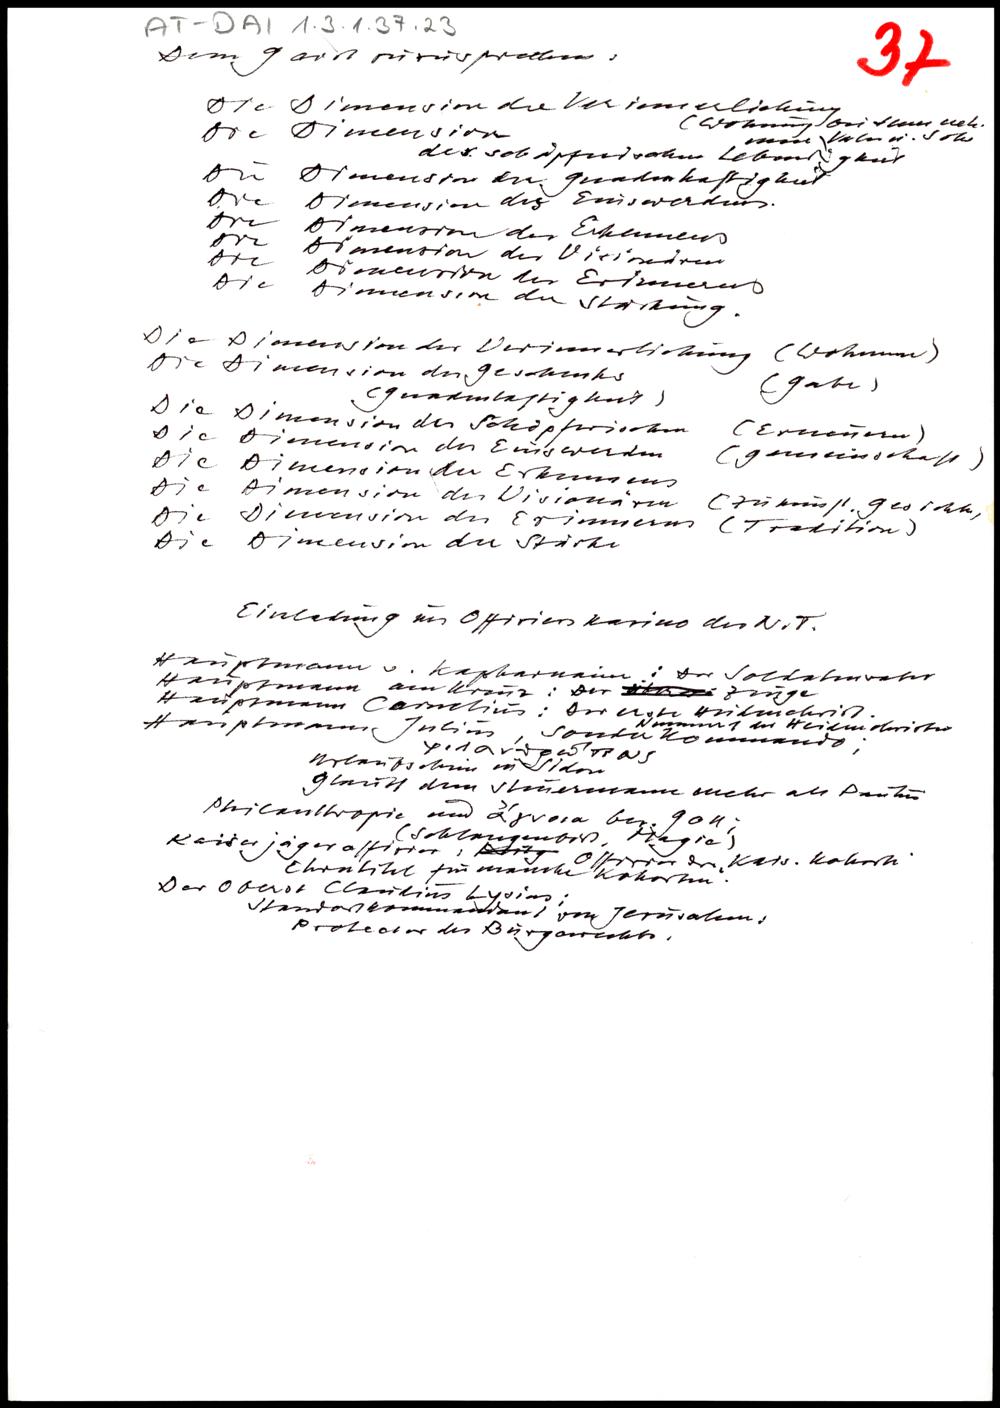 AT-DAI 1.3.1.37.23
37
Dem Geist zuzusprechen:
Die Dimension der Verinnerlichung
(Wohnung bei ihm neh-
men, Vater u. Sohn
Die Dimension
des schöpferischen Lebendigkeit
Die Dimension der Gnadenhaftigkeit
Die Dimension des Einswerdens.
Die Dimension des Erkennens
Die Dimension des Visionären
Die Dimension des Erinnerns
Die Dimension der Stärkung.
Die Dimension der Verinnerlichung (Wohnen)
Die Dimension des Geschenks (Gabe)
(Gnadenhaftigkeit)
Die Dimension des Schöpferischen (Erneuern)
Die Dimension des Einswerden (Gemeinschaft)
Die Dimension des Erkennens
Die Dimension des Visionären (Zukunft, Gesichte,
Die Dimension des Erinnerns (Tradition)
Die Dimension der Stärke
Einladung ins Offizierskasino des N.T.
Hauptmann v. Kapharnaum: Der Soldatenvater
Hauptmann am Kreuz: Der Zeuge
Hauptmann Cornelius: Der erste Heidenchrist.
Nummer 1 der Heidenchristen
Hauptmann Julius, Sonderkommando;
φιλανθρώπως
Urlaubschein in Sidon
Glaubt dem Steuermann mehr als Paulus
Philanthropie und bez. Gott;
(Schlangenbiss, Magie)
Kaiserjägeroffizier; Offizier der Kais. Kohorte
Ehrentitel für manche Kohorten.
Der Oberst Claudius Lysias;
Standortkommandant von Jerusalem:
Protector des Bürgerrechts.